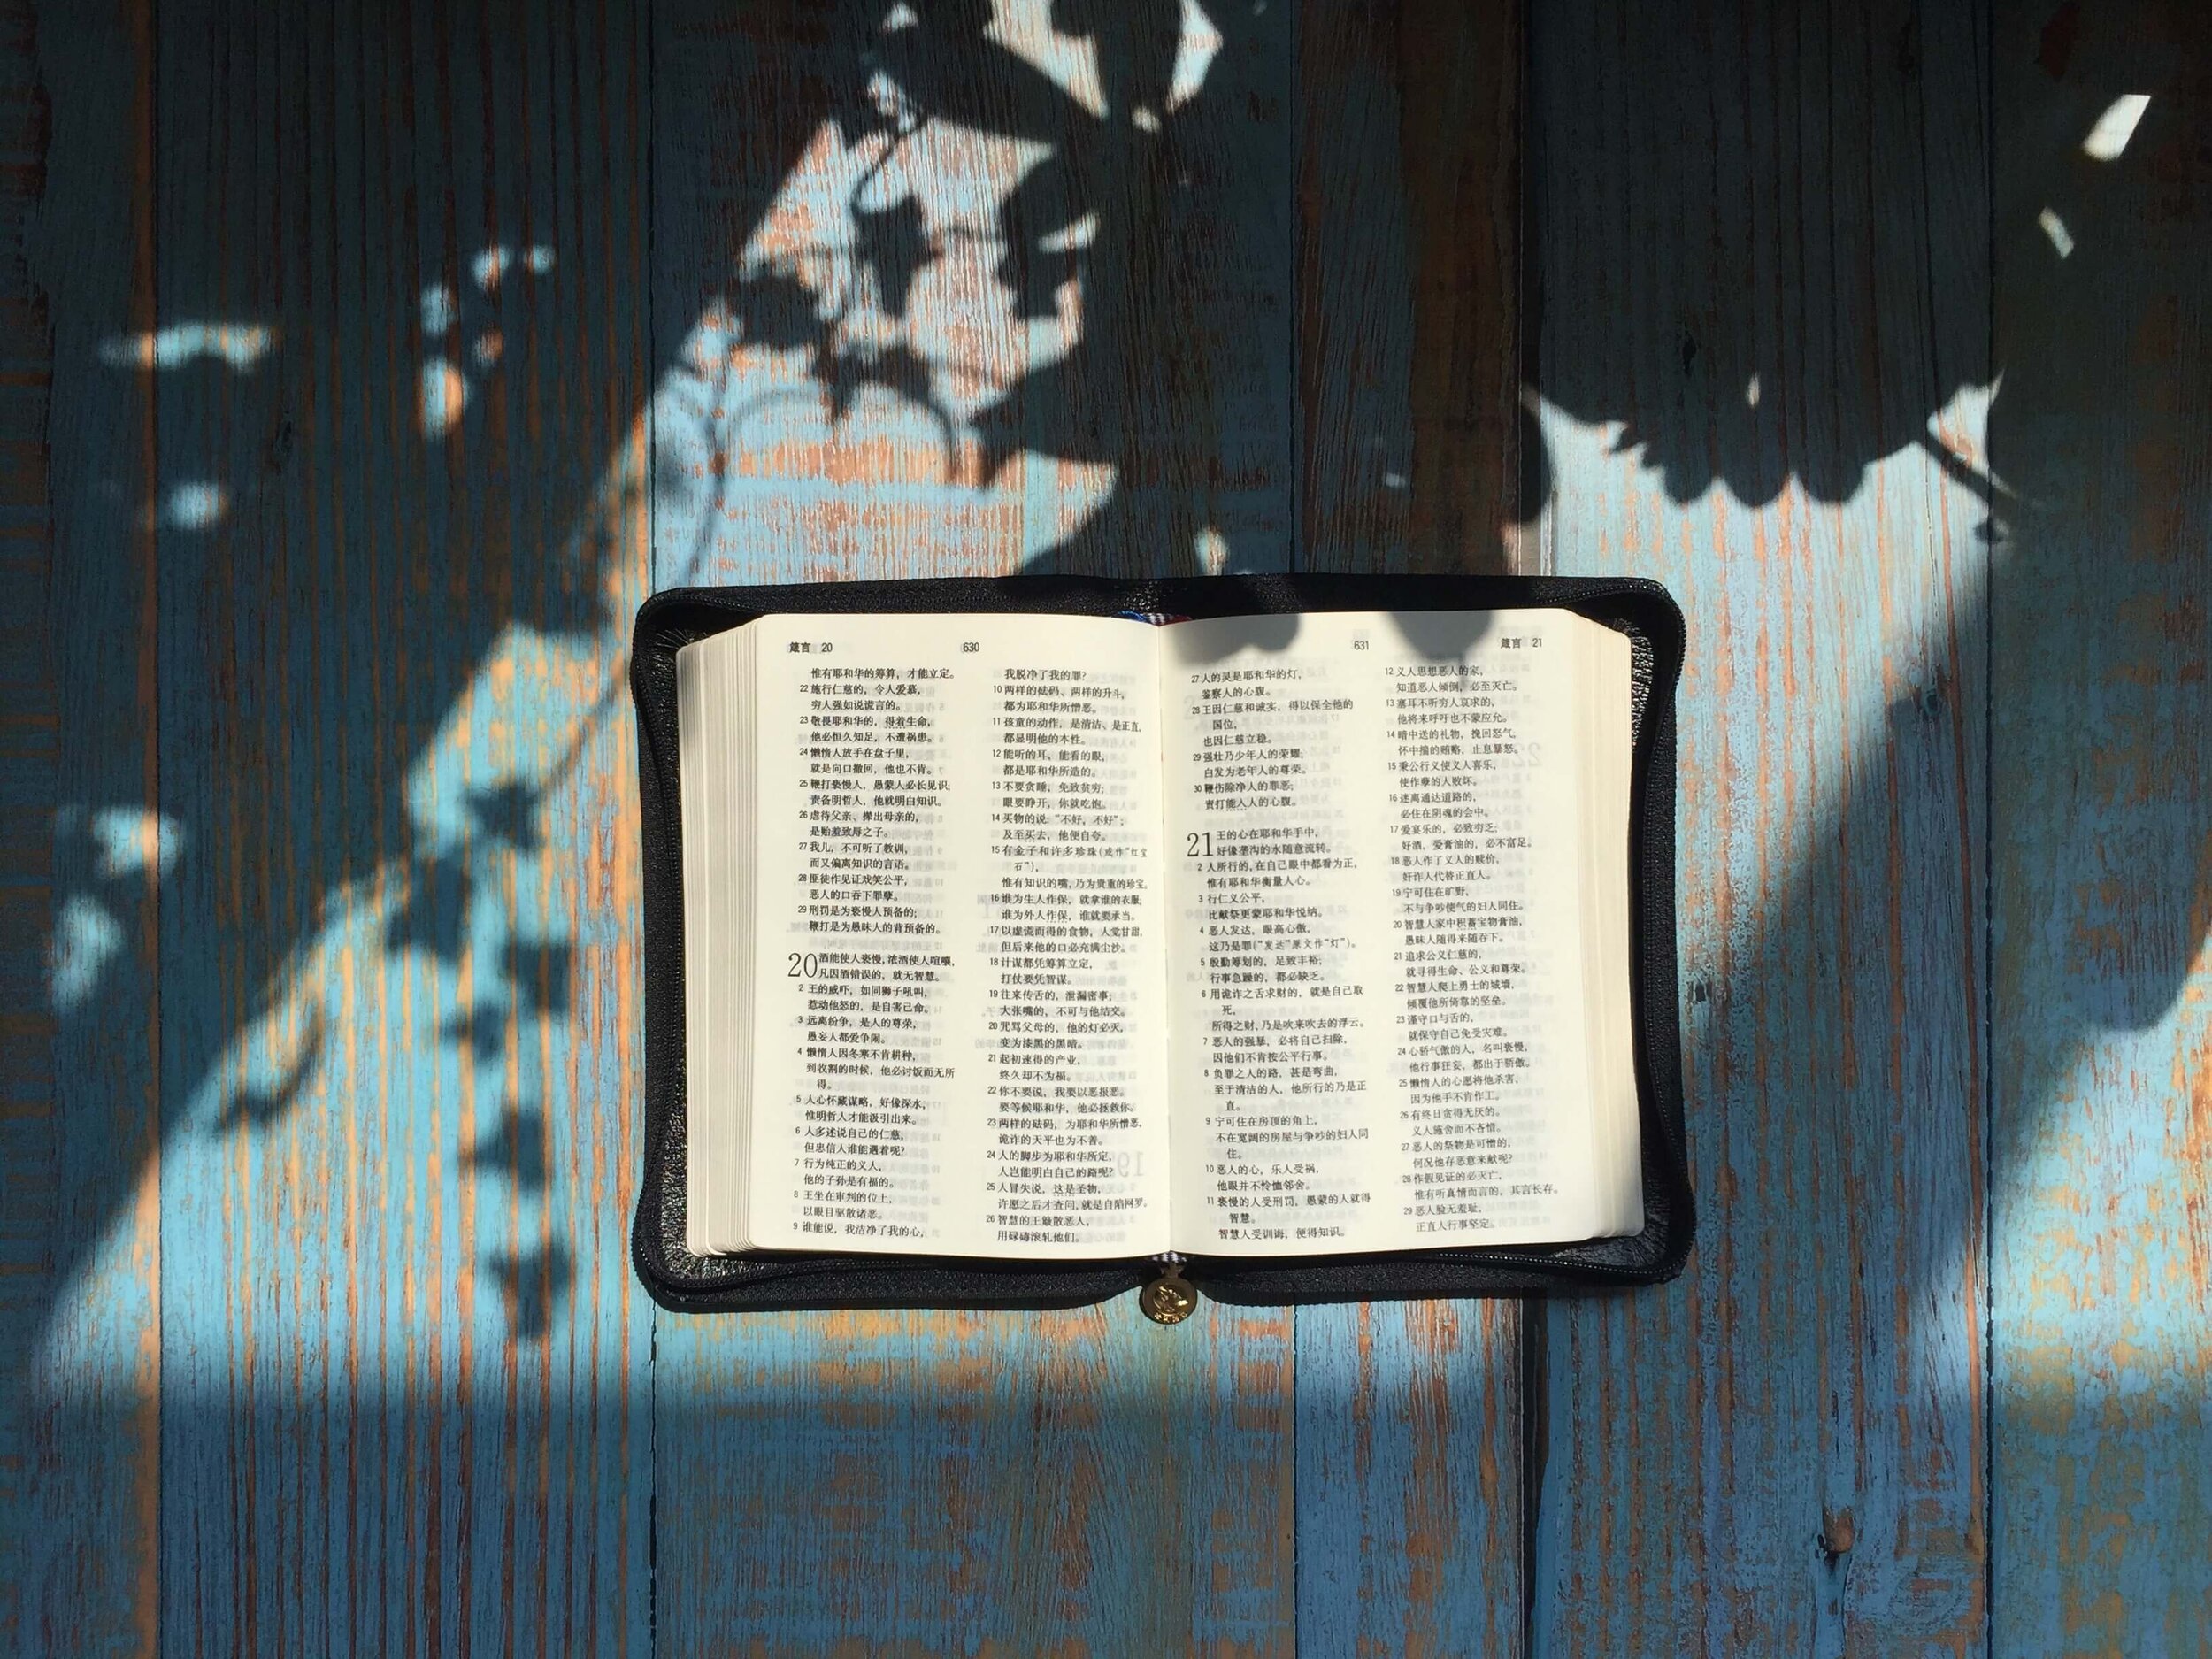 箴言 20
630
惟有耶和华的筹算，才能立定。
22 施行仁慈的，令人爱慕，
穷人强如说谎言的。
23 敬畏耶和华的，得着生命，
他必恒久知足，不遭祸患。
24 懒惰人放手在盘子里，
就是向口撤回，他也不肯。
25 鞭打亵慢人，愚蒙人必长见识；
责备明哲人，他就明白知识。
26 虐待父亲、撵出母亲的，
是贻羞致辱之子。
27 我儿，不可听了教训，
而又偏离知识的言语。
28 匪徒作见证戏笑公平，
恶人的口吞下罪孽。
29 刑罚是为亵慢人预备的；
鞭打是为愚昧人的背预备的。
20 酒能使人亵慢，浓酒使人喧嚷，
凡因酒错误的，就无智慧。
2 王的威吓，如同狮子吼叫，
惹动他怒的，是自害己命。
3 远离纷争，是人的尊荣，
愚妄人都爱争闹。
4 懒惰人因冬寒不肯耕种，
到收割的时候，他必讨饭而无所
得。
5 人心怀藏谋略，好像深水，
惟明哲人才能汲引出来。
6 人多述说自己的仁慈，
但忠信人谁能遇着呢？
7 行为纯正的义人，
他的子孙是有福的。
8 王坐在审判的位上，
以眼目驱散诸恶。
9 谁能说，我洁净了我的心，
我脱净了我的罪？
10 两样的砝码、两样的升斗，
都为耶和华所憎恶。
11 孩童的动作，是清洁、是正直，
都显明他的本性。
12 能听的耳，能看的眼，
都是耶和华所造的。
13 不要贪睡，免致贫穷；
眼要睁开，你就吃饱。
14 买物的说：“不好，不好”；
及至买去，他便自夸。
15 有金子和许多珍珠(或作“红宝
石”)，
惟有知识的嘴，乃为贵重的珍宝。
16 谁为生人作保，就拿谁的衣服；
谁为外人作保，谁就要承当。
17 以虚谎而得的食物，人觉甘甜，
但后来他的口必充满尘沙。
18 计谋都凭筹算立定，
打仗要凭智谋。
19 往来传舌的，泄漏密事；
大张嘴的，不可与他结交。
20 咒骂父母的，他的灯必灭，
变为漆黑的黑暗。
21 起初速得的产业，
终久却不为福。
22 你不要说，我要以恶报恶。
要等候耶和华，他必拯救你。
23 两样的砝码，为耶和华所憎恶，
诡诈的天平也为不善。
24 人的脚步为耶和华所定，
人岂能明白自己的路呢？
25 人冒失说，这是圣物，
许愿之后才查问，就是自陷网罗。
26 智慧的王簸散恶人，
用碌碡滚轧他们。
631
箴言 21
27 人的灵是耶和华的灯，
鉴察人的心腹。
28 王因仁慈和诚实，得以保全他的
国位，
也因仁慈立稳。
29 强壮乃少年人的荣耀，
白发为老年人的尊荣。
30 鞭伤除净人的罪恶；
责打能入人的心腹。
21 王的心在耶和华手中，
好像垄沟的水随意流转。
2 人所行的，在自己眼中都看为正，
惟有耶和华衡量人心。
3 行仁义公平，
比献祭更蒙耶和华悦纳。
4 恶人发达，眼高心傲，
这乃是罪(“发达”原文作“灯”)。
5 殷勤筹划的，足致丰裕；
行事急躁的，都必缺乏。
6 用诡诈之舌求财的，就是自己取
死，
所得之财，乃是吹来吹去的浮云。
7 恶人的强暴，必将自己扫除，
因他们不肯按公平行事。
8 负罪之人的路，甚是弯曲，
至于清洁的人，他所行的乃是正
直。
9 宁可住在房顶的角上，
不在宽阔的房屋与争吵的妇人同
住。
10 恶人的心，乐人受祸，
他眼并不怜恤邻舍。
11 亵慢的人受刑罚，愚蒙的人就得
智慧。
智慧人受训诲，便得知识。
12 义人思想恶人的家，
知道恶人倾倒，必至灭亡。
13 塞耳不听穷人哀求的，
他将来呼吁也不蒙应允。
14 暗中送的礼物，挽回怒气，
怀中搋的贿赂，止息暴怒。
15 秉公行义使义人喜乐，
使作孽的人败坏。
16 迷离通达道路的，
必住在阴魂的会中。
17 爱宴乐的，必致穷乏；
好酒、爱膏油的，必不富足。
18 恶人作了义人的赎价，
奸诈人代替正直人。
19 宁可住在旷野，
不与争吵使气的妇人同住。
20 智慧人家中积蓄宝物膏油，
愚昧人随得来随吞下。
21 追求公义仁慈的，
就寻得生命、公义和尊荣。
22 智慧人爬上勇士的城墙，
倾覆他所倚靠的坚垒。
23 谨守口与舌的，
就保守自己免受灾难。
24 心骄气傲的人，名叫亵慢，
他行事狂妄，都出于骄傲。
25 懒惰人的心愿将他杀害，
因为他手不肯作工。
26 有终日贪得无厌的，
义人施舍而不吝惜。
27 恶人的祭物是可憎的，
何况他存恶意来献呢？
28 作假见证的必灭亡，
惟有听真情而言的，其言长存。
29 恶人脸无羞耻，
正直人行事坚定。